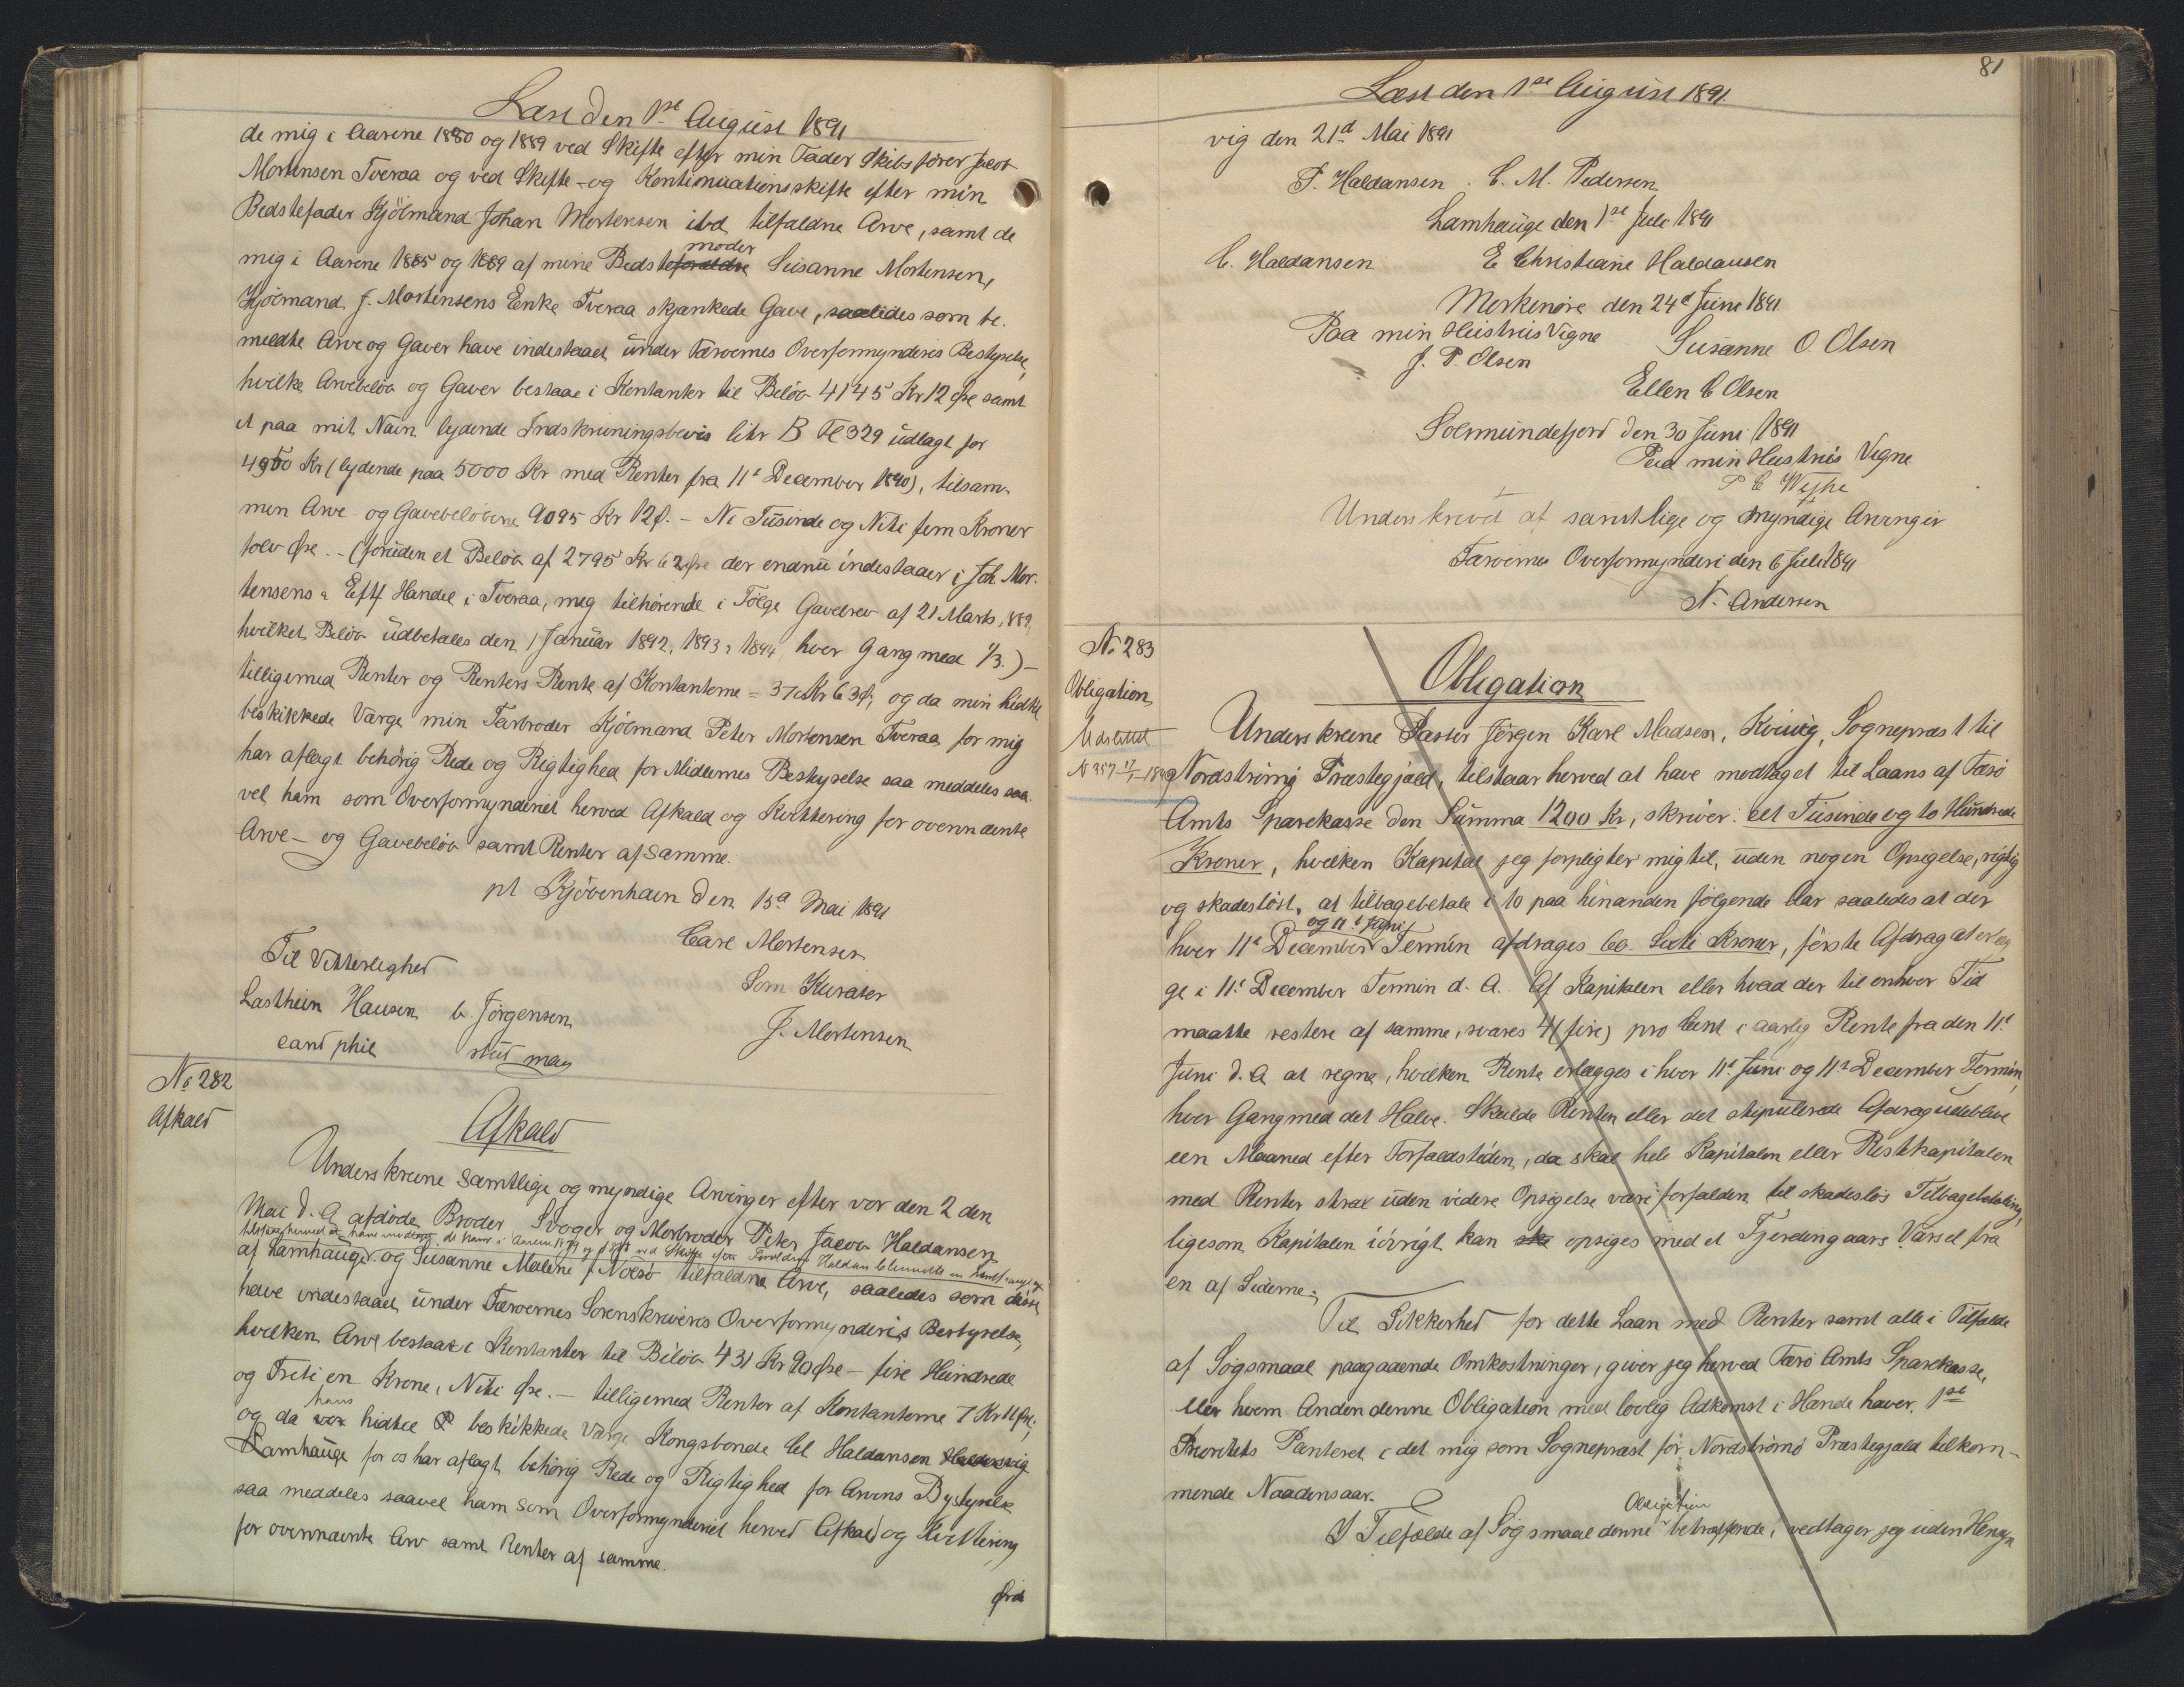 Læst den 1ste August 1891
de mig i Aarene 1880 og 1889 ved Skifte efter min Fader Skibsfører Jacob
Mortensen Tveraa og ved Skifte- og Kontinuationsskifte efter min
Bedstefader Kjöbmand Johan Mortensen ibd tilfaldne Arve, samt de
moder
mig i Aarene 1885 og 1889 af mine Bedsteforældre Susanne Mortensen,
Kjöbmand J. Mortensens Enke Tveraa skjænkede Gave, saaledes som be-
meldte Arve og Gaver have indestaaet under Færøernes Overformynderis Bestyrelse,
hvilke Arvebeløb og Gaver bestaae i Kontanter til Beløb 4145 Kr 12 Øre samt
et paa mit Navn lydende Indskrivningsbevis litr B Fl 329 udlagt for
4950 Kr (lydende paa 5000 Kr med Renter fra 11t December 1890), tilsam-
men Arve og Gavebeløbene 9095 Kr 12 Ø. - Ni Tusinde og Niti fem Kroner
tolv Øre. - (foruden et Beløb af 2795 Kr 62 Øre der endnu indestaaer i Joh. Mor-
tensens Eftf Handel i Tveraa, mig tilhørende i Følge Gavebrev af 21 Marts 1889,
hvilket Beløb udbetales den 1 Januar 1892, 1893 & 1894 hver Gang med 1/3.) -
tilligemed Renter og Renters Rente af Kontanterne = 37 Kr 63 Ø; og da min hidtil
beskikkede Værge min Farbroder Kjöbmand Peter Mortensen Tveraa for mig
har aflagt behörig Rede og Rigtighed for Midlernes Bestyrelse saa meddeles saa-
vel ham som Overformynderiet herved Afkald og Kvittering for ovennævnte
Arve- og Gavebeløb samt Renter af samme.
pt Kjöbenhavn den 15d Mai 1891
Carl Mortensen
Til Vitterlighed
Som Kurator
Lasthein Hansen C. Jörgensen
J. Mortensen
cand phil stud mag
No 282
Afkald
Afkald
Underskrevne samtlige og myndige Arvinger efter vor den 2 den
Mai d. A. afdöde Broder, Svoger og Morbroder Peter Jacob Haldansen
tilstaar herved at have modtaget de ham i Aarene 1879 og ved Skifte efter Forældre Haldan
af Lamhauge og Susanne Malene f Nolsö tilfaldne Arve, saaledes som disse
have indestaaet under Færøernes Sorenskriveris Overformynderis Bestyrelse,
hvilken Arve bestaar i Kontanter til Beløb 431 Kr 90 Øre - fire Hundrede
og Treti en Krone, Niti Øre. - tilligemed Renter af Kontanterne 7 Kr 11 Øre;
hans
og da vor hidtil beskikkede Værge Kongsbonde Cl Haldansen Haldersvig
Lamhauge for os har aflagt behörig Rede og Rigtighed for Arvens Bystyrelse
saa meddeles saavel ham som Overformynderiet herved Afkald og Kvittering
for ovennævnte Arv samt Renter af samme.
81
Læst den 1ste August 1891.
vig den 21d Mai 1891
P. Haldansen. C. M. Pedersen
Lamhauge den 1ste Juli 1891
C. Haldansen E Christiane Haldansen
Morkenöre den 24d Juni 1891
Paa min Hustrus Vigne Susanne O. Olsen
J. P. Olsen
Ellen C Olsen
Solmundefjord den 30 Juni 1891
Paa min Hustrus Vegne
P C Weyhe
Underskrevet af samtlige og myndige Arvinger
Færøernes Overformynderi den 6 Juli 1891
N. Andersen
No 283
Obligation
Obligation
Udslettet
N 357 17/1-1899
Underskrevne Pastor Jörgen Karl Madsen, Kvivig, Sognepræst til
Nordströmö Præstegjæld, tilstaar herved at have modtaget til Laans af Færö
Amts Sparekasse den Summa 1200 Kr, skriver: eet Tusinde og to Hundrede
Kroner, hvilken Kapital jeg forpligter mig til, uden nogen Opsigelse, rigtig
og skadeslöst, at tilbagebetale i 10 paa hinanden fölgende Aar saaledes at der
og 11t Juni
hver 11t December Termin afdrages 60. Sixti Kroner, förste Afdrag at erlæg
ge i 11t December Termin d. A. Af Kapitalen eller hvad der til enhver Tid
maatte restere af samme, svares 4 (fire) pro Cent i aarlig Rente fra den 11t
Juni d. A. at regne, hvilken Rente erlægges i hver 11t Juni og 11t December Termin,
hver Gang med det Halve. Skulde Renten eller det stipulerede Afdrag udeblive
een Maaned efter Forfaldstiden, da skal hele Kapitalen eller Restkapitalen
med Renter strax uden videre Opsigelse være forfalden til skadeslös Tilbagebetaling,
ligesom Kapitalen iövrigt kan ske opsiges med et Fjerdingaars Varsel fra
en af Siderne.
Til Sikkerhed for dette Laan med Renter samt alle i Tilfælde
af Sögsmaal paagaaende Omkostninger, giver jeg herved Færö Amts Sparekasse,
eller hvem Anden denne Obligation med lovlig Adkomst i Hænde haver, 1ste
Prioritets Panteret i det mig som Sognepræst for Nordströmö Præstegjæld tilkom-
mende Naadensaar.
Obligation
I Tilfælde af Sögsmaal denne betræffende, vedtager jeg uden Hensyn